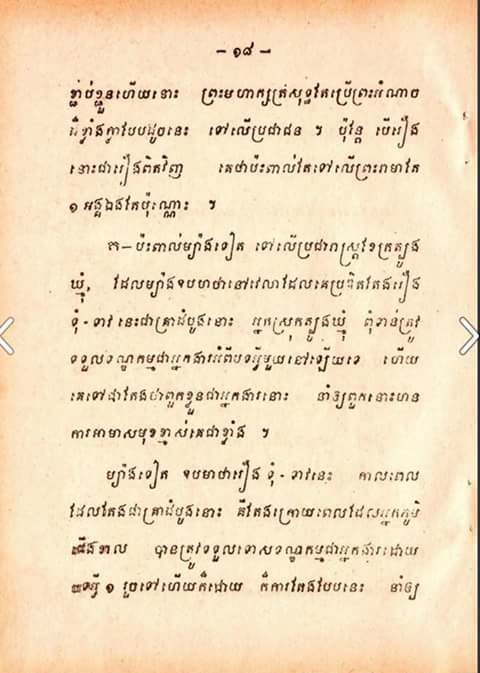 — ១៨ —
ខ្ជាប់ខ្ជួនហើយនោះ ព្រះមហាក្សត្រសុទ្ធតែប្រើព្រះអំណាច
ដ៏ខ្លាំងក្លាបែបដូចនេះ ទៅលើប្រជាជន ។ ប៉ុន្តែ បើរឿង
នោះជារឿងពិតវិញ គេថាប៉ះពាល់តែទៅលើព្រះរាមាតែ
១ អង្គឯងតែប៉ុណ្ណោះ ។
២—ប៉ះពាល់ម្យ៉ាងទៀត ទៅលើប្រជារាស្ត្រខែត្រត្បូង
ឃ្មុំ, ដែលម្យ៉ាងឧបមាថានៅវេលាដែលគេប្រឌិតតែងរឿង
ទុំ-ទាវ នេះជាគ្រាដំបូងនោះ អ្នកស្រុកត្បូងឃ្មុំ ពុំទាន់ត្រូវ
ទទួលទណ្ឌកម្មជាអ្នកងារអំពីបទអ្វីមួយនៅឡើយទេ ហើយ
គេទៅជាតែងថាពួកខ្លួនជាអ្នកងារនោះ នាំឲ្យពួកនោះមាន
ការអាមាសមុខខ្មាស់គេជាខ្លាំង ។
ម្យ៉ាងទៀត ឧបមាថារឿង ទុំ-ទាវនេះ កាលពេល
ដែលតែងជាគ្រាដំបូងនោះ គឺតែងក្រោយពេលដែលអ្នកភូមិ
បានត្រូវទទួលទោសទណ្ឌកម្មជាអ្នកងារដោយ
១ រួចទៅហើយក៏ដោយ ក៏ការតែងបែបនេះ នាំឲ្យ